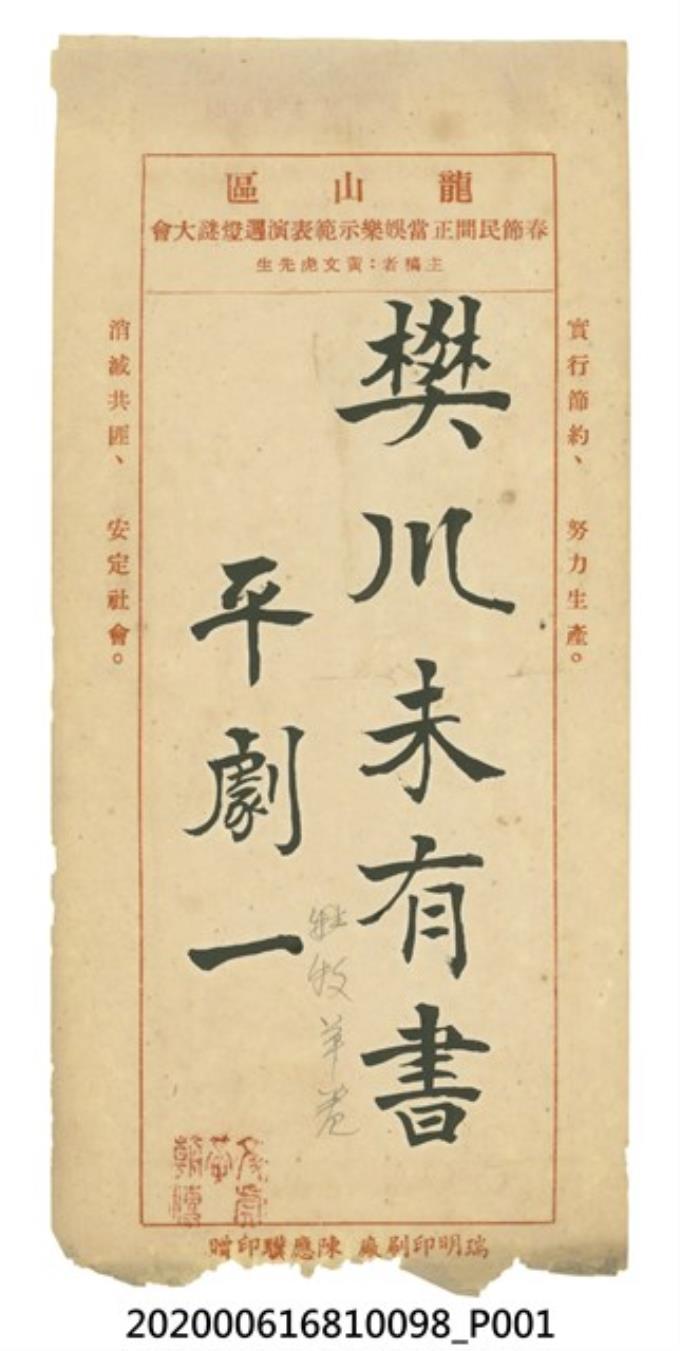 龍山區
春節民間正當娛樂示範表演週燈謎大會
主稿者：黃文虎先生
實行節約、努力生產。
樊川未有書
平劇一
牧羊卷
消滅共匪、安定社會。
瑞明印刷廠 陳應驥印贈
202000616810098_P001